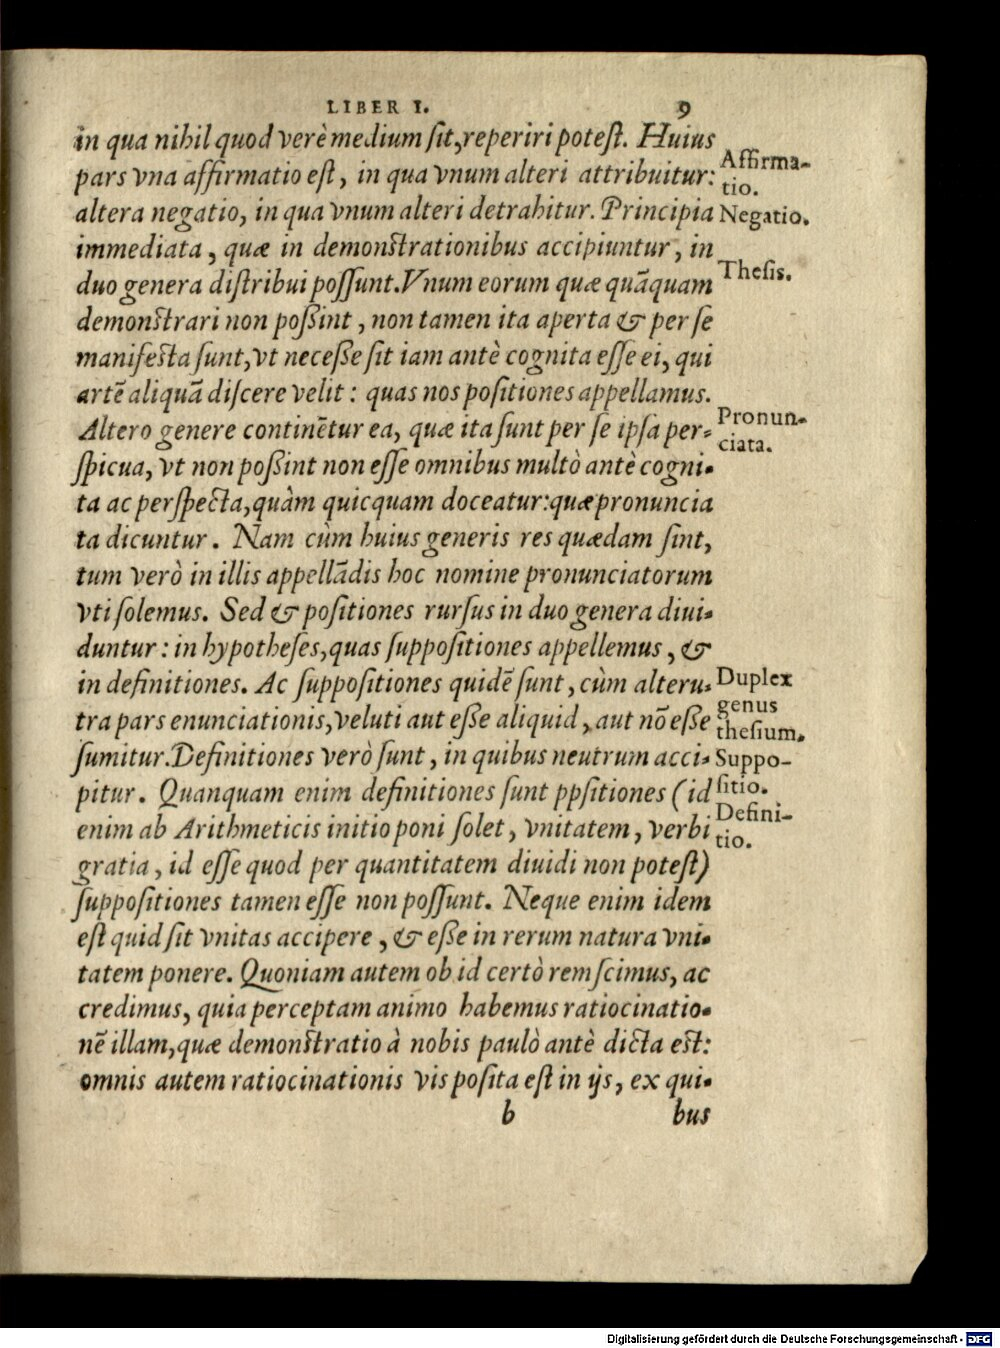 LIBER I. 9
in qua nihil quod verè medium sit, reperiri potest. Huius
pars vna affirmatio est, in qua vnum alteri attribuitur:
Affirma-
tio.
altera negatio, in qua vnum alteri detrahitur. Principia
Negatio.
immediata, quæ in demonstrationibus accipiuntur, in
duo genera distribui possunt. Vnum eorum quæ quāquam
Thesis.
demonstrari non possint, non tamen ita aperta & per se
manifesta sunt, vt necesse sit iam antè cognita esse ei, qui
artē aliquā discere velit: quas nos positiones appellamus.
Altero genere continētur ea, quæ ita sunt per se ipsa per-
Pronun-
ciata.
spicua, vt non possint non esse omnibus multò antè cogni-
ta ac perspecta, quàm quicquam doceatur: quæ pronuncia
ta dicuntur. Nam cùm huius generis res quædam sint,
tum verò in illis appellādis hoc nomine pronunciatorum
vti solemus. Sed & positiones rursus in duo genera diui-
duntur: in hypotheses, quas suppositiones appellemus, &
in definitiones. Ac suppositiones quidē sunt, cùm alteru-
Duplex
genus
thesium.
tra pars enunciationis, veluti aut esse aliquid, aut nō esse
sumitur. Definitiones verò sunt, in quibus neutrum acci-
Suppo-
sitio.
pitur. Quanquam enim definitiones sunt ppsitiones (id
enim ab Arithmeticis initio poni solet, vnitatem, verbi
Defini-
tio.
gratia, id esse quod per quantitatem diuidi non potest)
suppositiones tamen esse non possunt. Neque enim idem
est quid sit vnitas accipere, & esse in rerum natura vni-
tatem ponere. Quoniam autem ob id certò rem scimus, ac
credimus, quia perceptam animo habemus ratiocinatio-
nē illam, quæ demonstratio à nobis paulò antè dicta est:
omnis autem ratiocinationis vis posita est in ijs, ex qui-
b bus
Digitalisierung gefördert durch die Deutsche Forschungsgemeinschaft - DFG